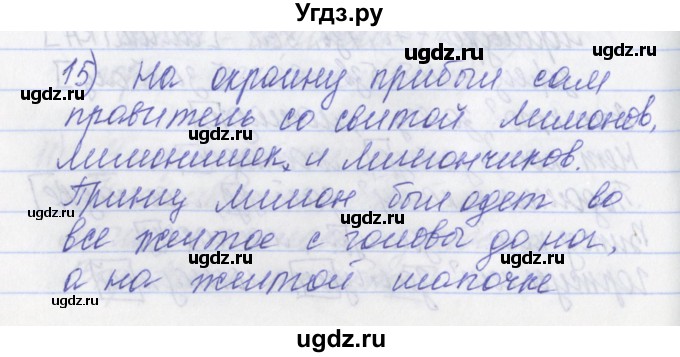 Угдз.ру
15) На окраину прибыл сам
правитель со свитой Лимонов,
Лимонишек и Лимончиков.
Принц Лимон был одет во
все желтое с головы до ног,
а на желтой шапочке
ugdz.ru
ugdz.ru
ugdz.ru
ugdz.ru
ugdz.ru
ugdz.ru
ugdz.ru
ugdz.ru
ugdz.ru
ugdz.ru
ugdz.ru